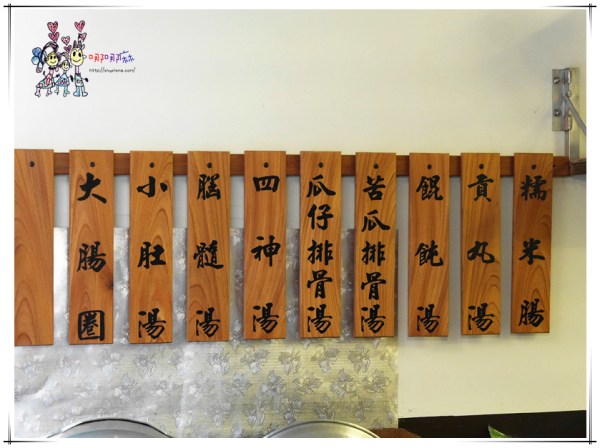 糯米腸
貢丸湯
餛飩湯
苦瓜排骨湯
瓜仔排骨湯
四神湯
腦髓湯
小肚湯
大腸圈